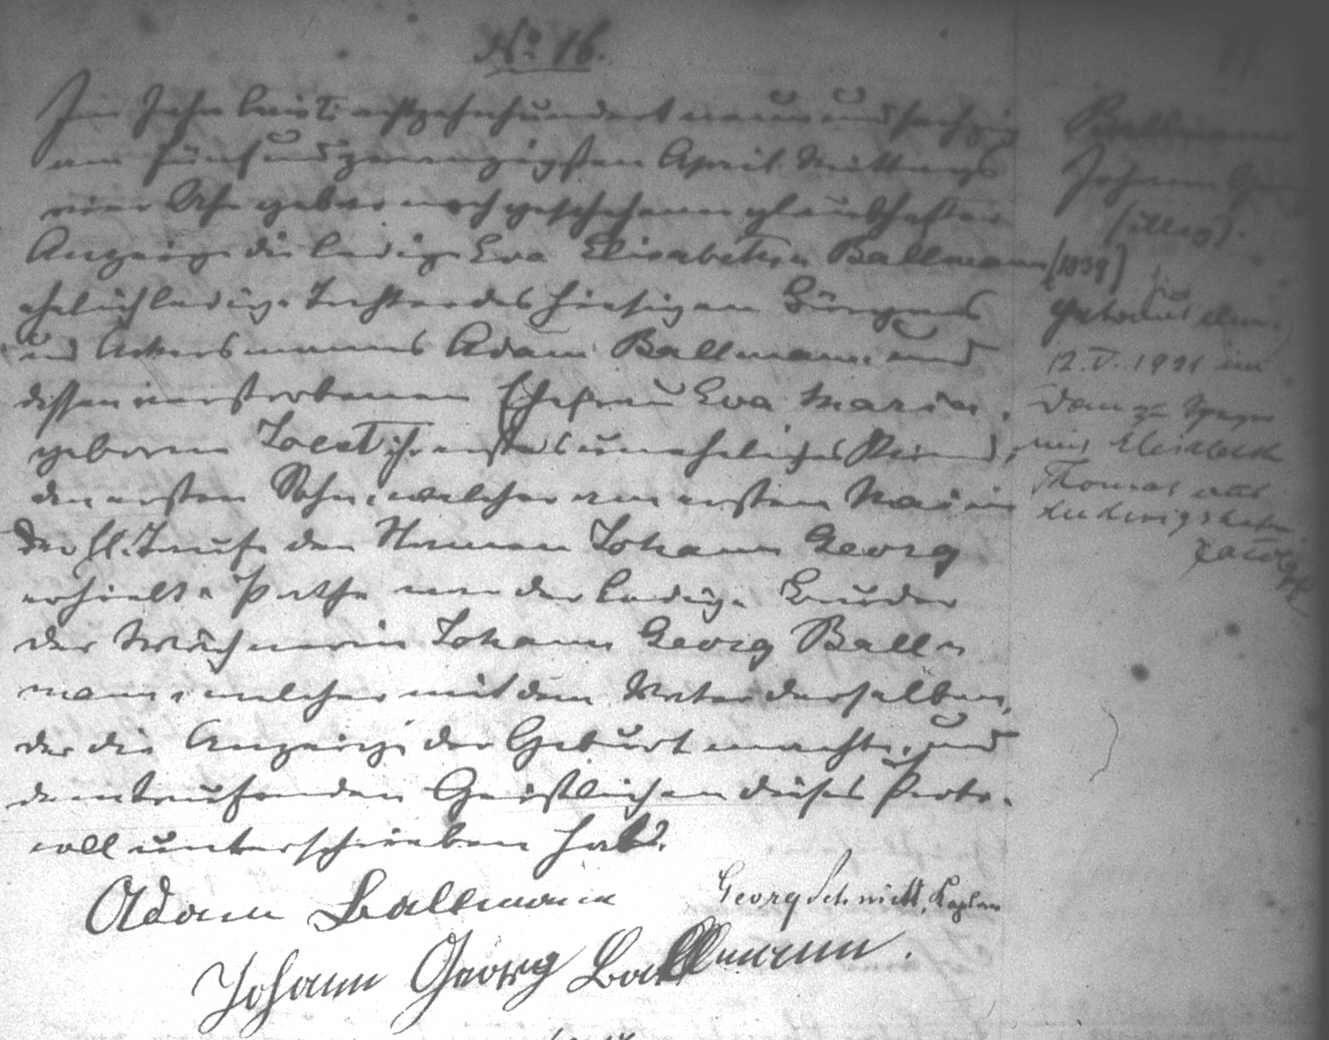 No 16.
Im Jahre Christi achtzehnhundert neun und sechzig
am fünf und zwanzigsten April Mittags
vier Uhr gebar nach geschehener glaubhafter
Anzeige die ledige Eva Elisabetha Ballmann (1839)
ehelich ledige Tochter des hiesigen Bürgers
und Ackersmannes Adam Ballmann und
dessen verstorbenen Ehefrau Eva Maria,
geborene Jost ihr erstes uneheliches Kind,
den ersten Sohn, welcher am ersten Mai in
der hl. Taufe den Namen Johann Georg
erhielt. Pathe war der ledige Bruder
der Wöchnerin Johann Georg Ball-
mann, welcher mit dem Vater derselben,
der die Anzeige der Geburt machte, und
dem taufenden Geistlichen dieses Proto-
coll unterschrieben hat.
Adam Ballmann
Georg Schmitt, Kaplan
Johann Georg Ballmann.
Ballmann
Johann Georg
(illeg).
getraut
12. V. 1921 im
Dom zu Speyer
mit Elisabeth
Thomas aus
Ludwigshafen